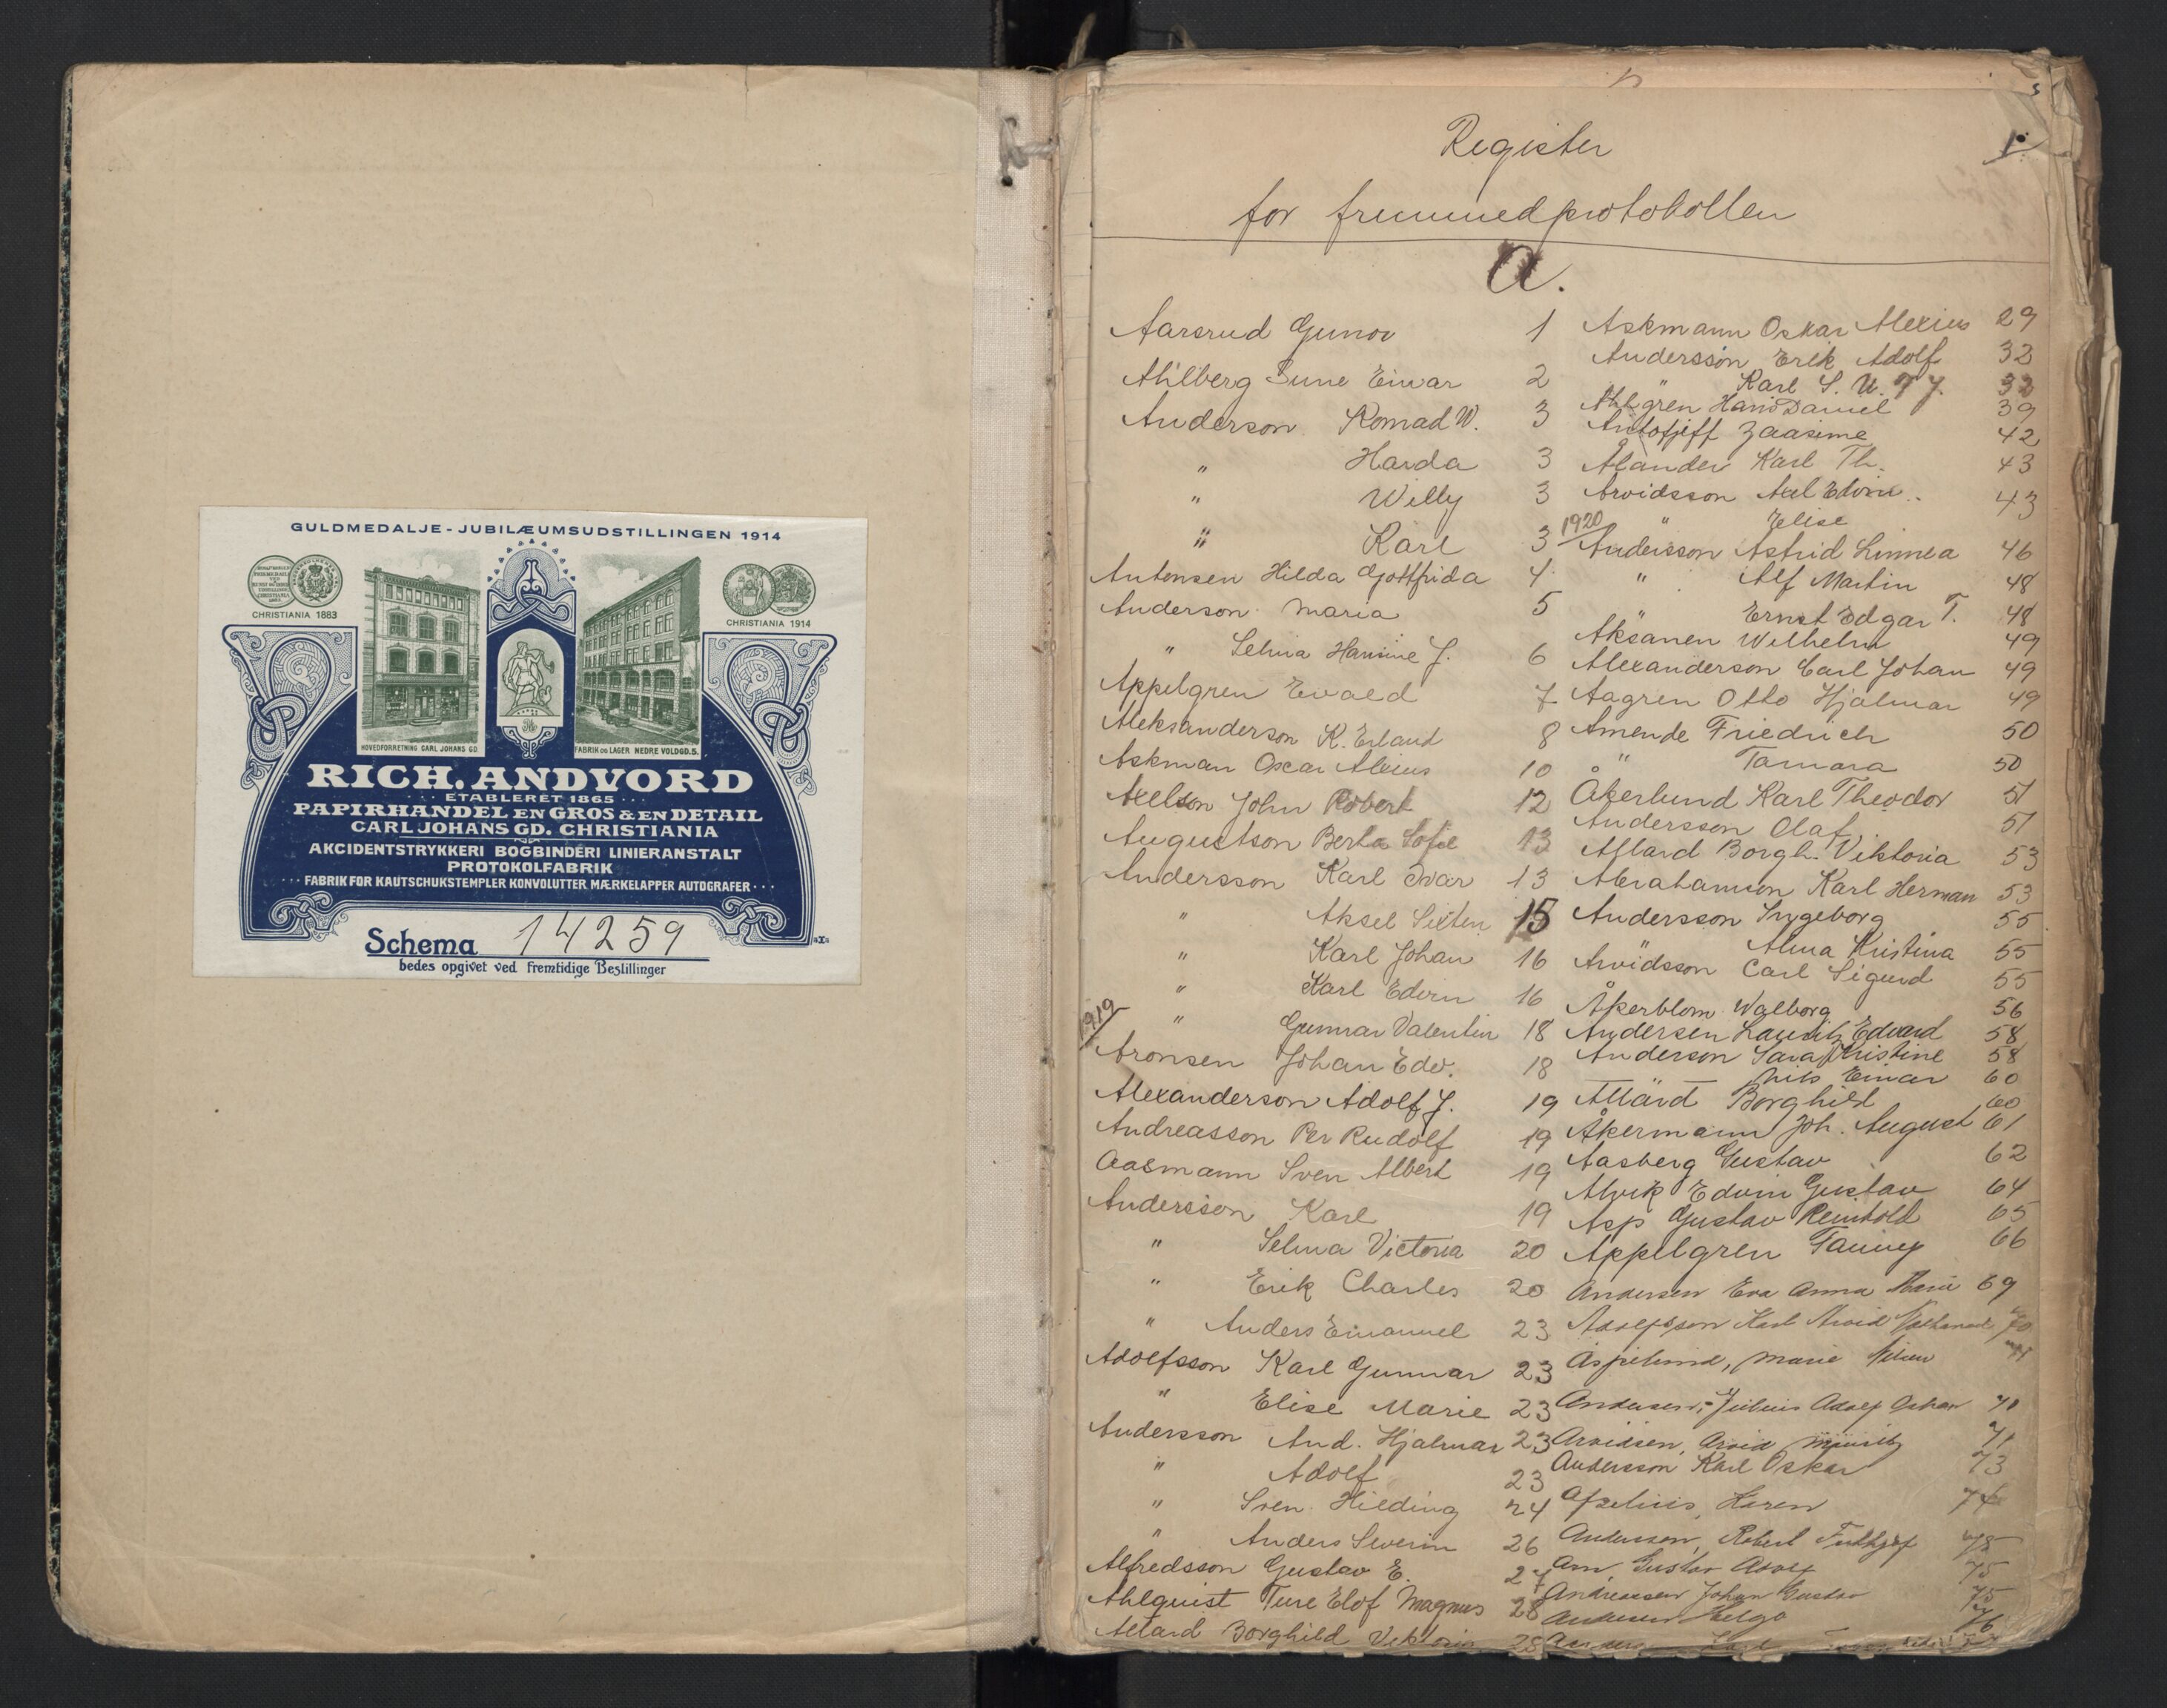 GULDMEDALJE-JUBILÆUMSUDSTILLINGEN 1914
CHRISTIANIA 1883
CHRISTIANIA 1914
HOVEDFORRETNING CARL JOHANS GD.
FABRIK OG LAGER NEDRE VOLDGD. 5.
RICH. ANDVORD
ETABLERET 1865
PAPIRHANDEL EN GROS & EN DETAIL
CARL JOHANS GD. CHRISTIANIA
AKCIDENTSTRYKKERI BOGBINDERI LINIERANSTALT
PROTOKOLFABRIK
FABRIK FOR KAUTSCHUKSTEMPLER KONVOLUTTER MÆRKELAPPER AUTOGRAFER
Schema 14259
bedes opgivet ved fremtidige Bestillinger
1.
Register
for fremmedprotokollen
A.
Aarsrud Gunor 1
Ahlberg Sune Einar 2
Anderson Konrad W. 3
" Harda 3
" Willy 3
" Karl 3
Antonsen Hilda Gottfrida 4
Anderson Maria 5
" Selma Hansine J. 6
Appelgren Evald 7
Aleksanderson K. Erland 8
Askman Oscar Alexius 10
Axelson John Robert 12
Augustson Berta Sofie 13
Andersson Karl Ivar 13
" Aksel Sixten 15
" Karl Johan 16
" Karl Edvin 16
1919
" Gunnar Valentin 18
Aronsen Johan Edv. 18
Alexanderson Adolf J. 19
Andreasson Per Rudolf 19
Aasmann Sven Albert 19
Andersson Karl 19
" Selma Victoria 20
" Erik Charles 20
" Anders Emanuel 23
Adolfsson Karl Gunnar 23
" Elise Marie 23
Andersson And. Hjalmar 23
" Adolf 23
" Sven Hilding 24
" Anders Severin 26
Alfredsson Gustav E. 27
Ahlquist Ture Elof Magnus 28
Allard Borghild Viktoria 28
Askmann Oskar Alexius 29
Andersson Erik Adolf 32
" Karl S. U. T. J. 32
Ahlgren Hans Daniel 39
Antofjeff Zaasime 42
Ålander Karl Th. 43
Arvidsson Axel Edvin 43
" Elise
1920
Andersson Astrid Linnea 46
" Alf Martin 48
" Ernst Edgar T. 48
Aksanen Wilhelm 49
Alexanderson Carl Johan 49
Aagren Otto Hjalmar 49
Amende Friedrich 50
" Tamara 50
Åkerlund Karl Theodor 51
Andersson Olaf 51
Allard Borgh. Viktoria 53
Abrahamson Karl Herman 53
Andersson Ingeborg 55
" Alma Kristina 55
Arvidsson Carl Sigurd 55
Åkerblom Walborg 56
Andersen Lauritz Edvard 58
Anderson Sara Kristine 58
— Nils Einar 60
Allard Borghild 60
Åkermann Joh. August 61
Aasberg Gustav 62
Alvik Edvin Gustav 64
Asp Gustav Reinhold 65
Appelgren Fanny 66
Andersen Eva Anna Maria 69
Adolfsson Karl Arvid Nathanael 70
Aspelund, Marie 71
Andersen, Julius Adolf Oskar 71
Arvidsen, Arvid Mauritz 71
Andersson Karl Oskar 73
Afzelius, Karen 74
Andersson, Robert Frithjof 75
Arn, Gustav Adolf 75
Andreassen Johan Gustav 75
Andersen Helga 76